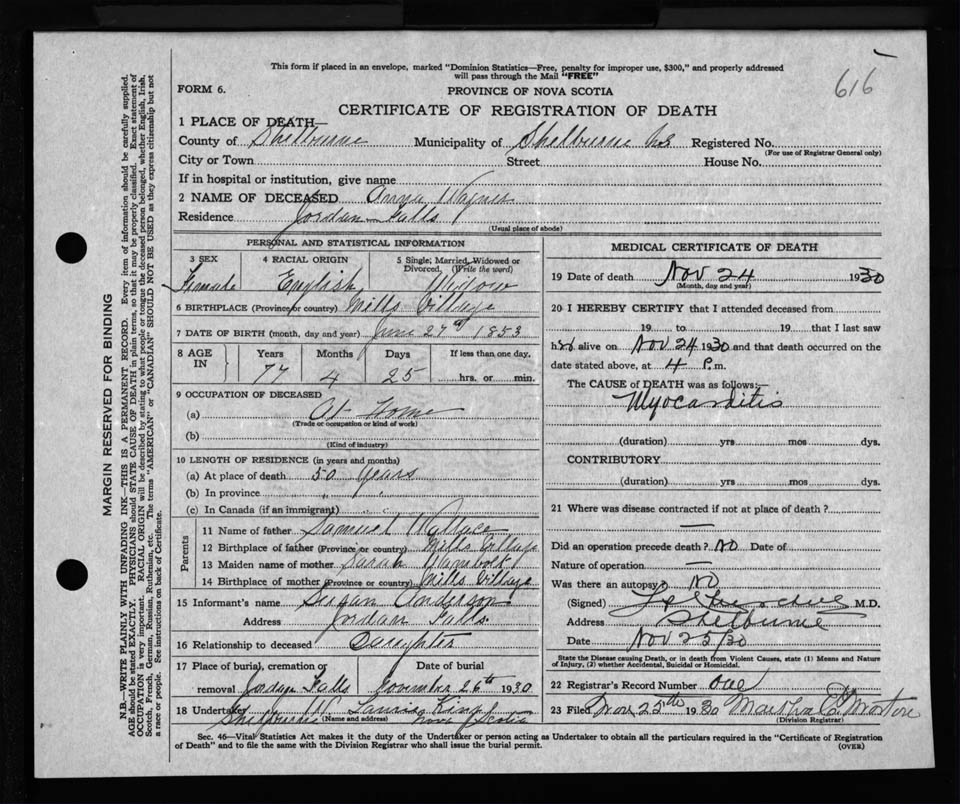 This form if placed in an envelope, marked "Dominion Statistics—Free, penalty for improper use, $300," and properly addressed
will pass through the Mail "FREE"
616
FORM 6.
PROVINCE OF NOVA SCOTIA
CERTIFICATE OF REGISTRATION OF DEATH
1 PLACE OF DEATH—
County of Shelburne Municipality of Shelburne Registered No.
(For use of Registrar General only)
City or Town Street House No.
If in hospital or institution, give name
2 NAME OF DECEASED Annie
Residence Jordan Falls
(Usual place of abode)
MARGIN RESERVED FOR BINDING
N.B.—WRITE PLAINLY WITH UNFADING INK—THIS IS A PERMANENT RECORD. Every item of information should be carefully supplied.
AGE should be stated EXACTLY. PHYSICIANS should STATE CAUSE OF DEATH in plain terms, so that it may be properly classified. Exact statement of
OCCUPATION is very important. RACIAL ORIGIN will be described by stating to what people or tongue the deceased person belonged, whether English, Irish,
Scotch, French, German, Russian, Ruthenian, etc. The terms "AMERICAN" or "CANADIAN" SHOULD NOT BE USED as they express citizenship but not
a race or people. See instructions on back of Certificate.
PERSONAL AND STATISTICAL INFORMATION
3 SEX
Female
4 RACIAL ORIGIN
English
5 Single, Married, Widowed or
Divorced, (Write the word)
Widow
6 BIRTHPLACE (Province or country) Mills Village
7 DATE OF BIRTH (month, day and year) June 27th 1853
8 AGE IN
Years Months Days If less than one day,
77 4 25 hrs. or min.
9 OCCUPATION OF DECEASED
(a) At Home
(Trade or occupation or kind of work)
(b)
(Kind of industry)
10 LENGTH OF RESIDENCE (in years and months)
(a) At place of death 50 years
(b) In province " "
(c) In Canada (if an immigrant) " "
Parents
11 Name of father Samuel Wallace
12 Birthplace of father (Province or country) Mills Village
13 Maiden name of mother Sarah
14 Birthplace of mother (Province or country) Mills Village
15 Informant's name Susan Anderson
Address Jordan Falls.
16 Relationship to deceased Daughter
17 Place of burial, cremation or Date of burial
removal Jordan Falls November 26th 1930
18 Undertaker King
Shelburne (Name and address) Nova Scotia
MEDICAL CERTIFICATE OF DEATH
19 Date of death Nov 24 1930
(Month, day and year)
20 I HEREBY CERTIFY that I attended deceased from
19 to 19 that I last saw
her alive on Nov 24 1930 and that death occurred on the
date stated above, at 4 P.m.
The CAUSE of DEATH was as follows:—
Myocarditis
(duration) yrs mos dys.
CONTRIBUTORY
(duration) yrs mos dys.
21 Where was disease contracted if not at place of death?
—
Did an operation precede death? No Date of
Nature of operation —
Was there an autopsy? No
(Signed) M.D.
Address Shelburne
Date Nov 25/30
State the Disease causing Death, or in death from Violent Causes, state (1) Means and Nature
of Injury, (2) whether Accidental, Suicidal or Homicidal.
22 Registrar's Record Number one
23 Filed Nov 25th 1930 Martha
(Division Registrar)
Sec. 46—Vital Statistics Act makes it the duty of the Undertaker or person acting as Undertaker to obtain all the particulars required in the "Certificate of Registration
of Death" and to file the same with the Division Registrar who shall issue the burial permit. (OVER)